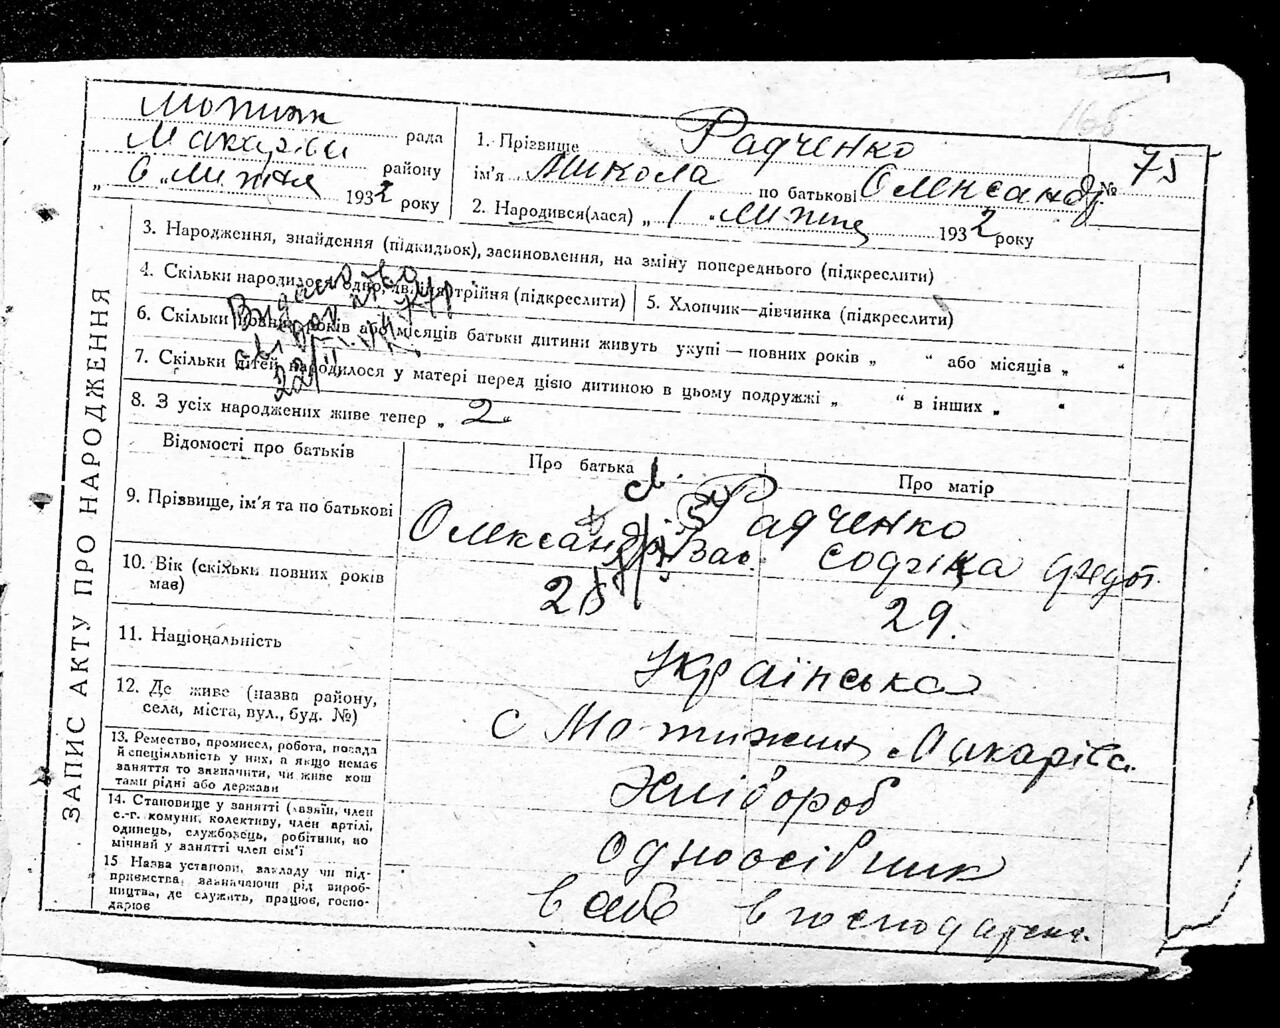 166
Мотиж рада
Макарів району
„ 6 „ Липня 1932 року
1. Прізвище Радченко
ім'я Микола по батькові Олександр. № 75
2. Народився(лася) „ 1 „ Липня 1932 року
ЗАПИС АКТУ ПРО НАРОДЖЕННЯ
3. Народження, знайдення (підкидьок), засиновлення, на зміну попереднього (підкреслити)
4. Скільки народилося одно, двійня, трійня (підкреслити)
5. Хлопчик—дівчинка (підкреслити)
6. Скільки повних років або місяців батьки дитини живуть укупі — повних років „ “ або місяців „ “
7. Скільки дітей народилося у матері перед цією дитиною в цьому подружжі „ “ в інших „ “
8. З усіх народжених живе тепер „ 2 “
Видано
22/II
Відомості про батьків
Про батька
Про матір
9. Прізвище, ім'я та по батькові
Радченко
Олександр Вас. Федот.
10. Вік (скільки повних років має)
28 29.
11. Національність
Українська
12. Де живе (назва району,
села, міста, вул., буд. №)
с Мотижин Макарівс.
13. Ремество, промисел, робота, посада
й спеціяльність у них, а якщо немає
заняття то зазначити, чи живе кош
тами рідні або держави
Хлібороб
14. Становище у занятті (хазяїн, член
с.-г. комуни, колективу, член артілі,
одинець, службовець, робітник, по
мічний у занятті член сім'ї
одноосібник
15 Назва установи, закладу чи під-
приємства, зазначаючи рід вироб-
ництва, де служить, працює, госпо-
дарює
в себе в господарств.